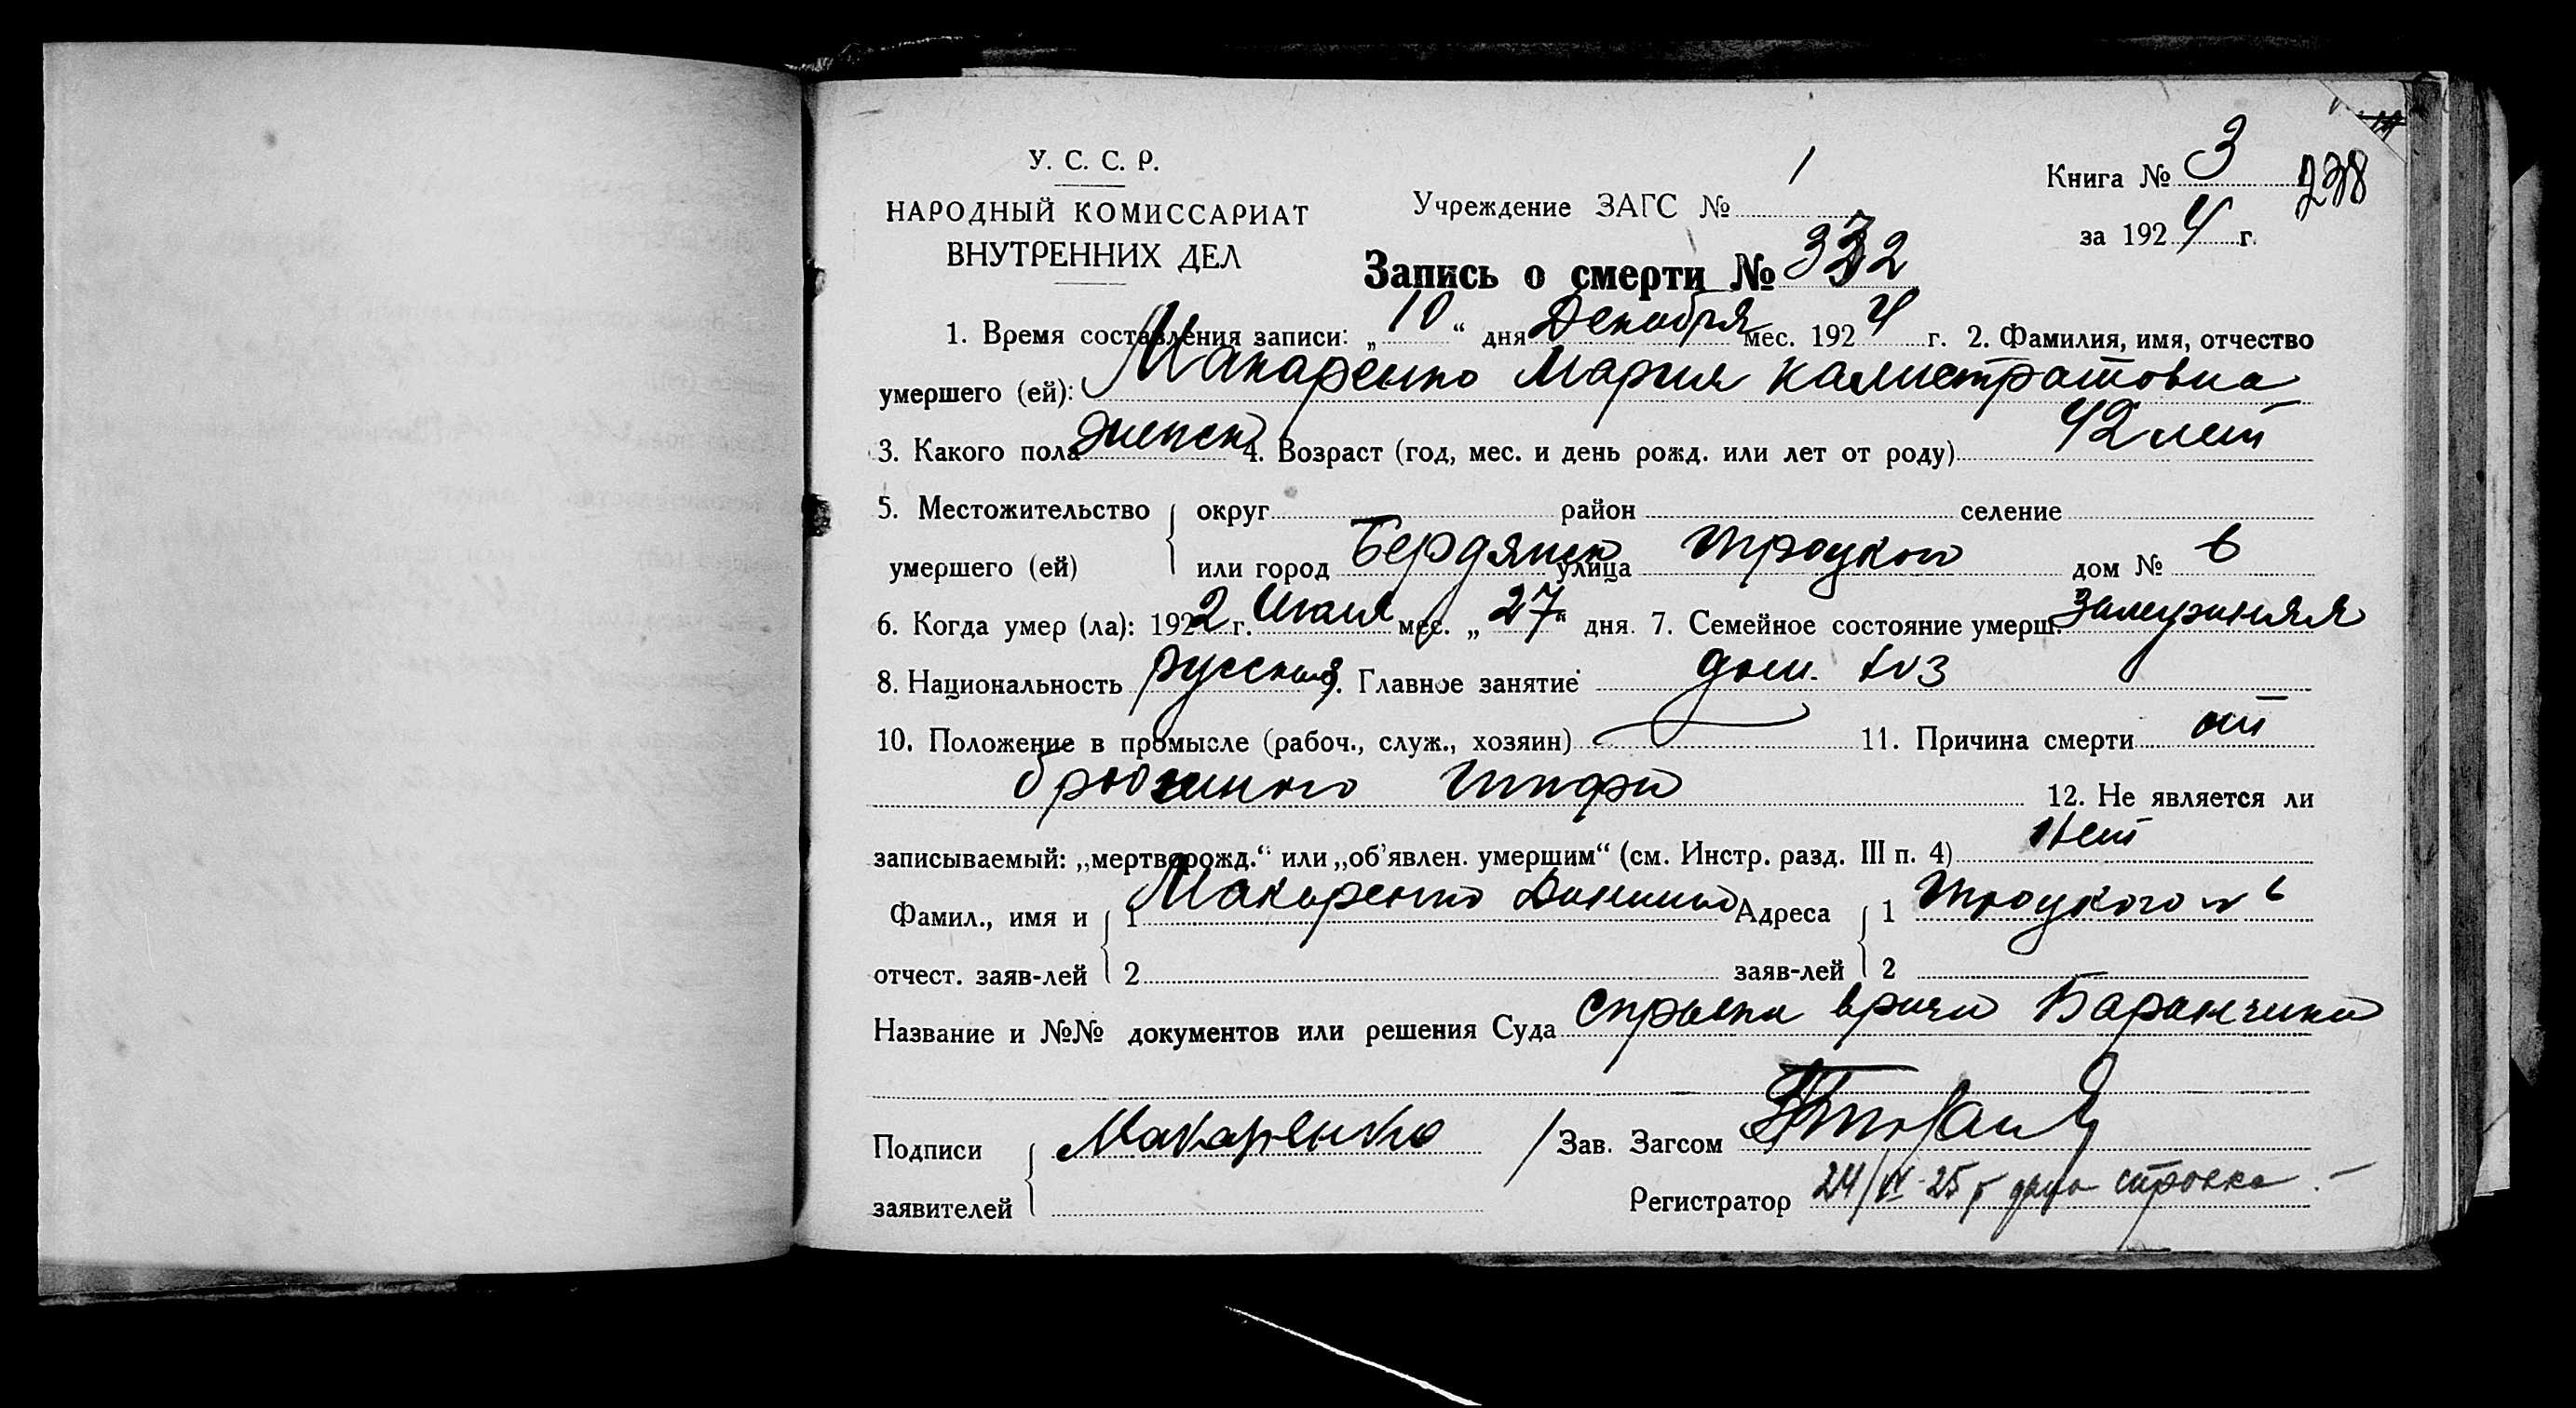 У. С. С. Р.
НАРОДНЫЙ КОМИССАРИАТ
ВНУТРЕННИХ ДЕЛ
Учреждение ЗАГС № 1
Книга № 3
238
за 1924 г.
Запись о смерти № 332
1. Время составления записи: „10“ дня Декабря мес. 1924 г. 2. Фамилия, имя, отчество
умершего (ей): Макаренко Мария Калистратовна
3. Какого пола женск 4. Возраст (год, мес. и день рожд. или лет от роду) 42 лет
5. Местожительство умершего (ей) { округ район селение
или город Бердянск улица Троцкого дом № 6
6. Когда умер (ла): 1922 г. мес. „27“ дня. 7. Семейное состояние умерш. Замужняя
8. Национальность русская 9. Главное занятие дом. хоз
10. Положение в промысле (рабоч., служ., хозяин) 11. Причина смерти от
брюшного тифа
12. Не является ли
записываемый: „мертворожд.“ или „об'явлен. умершим“ (см. Инстр. разд. III п. 4) Нет
Фамил., имя и отчест. заяв-лей { 1 Макаренко Адреса заяв-лей { 1 Троцкого № 6
2 2
Название и №№ документов или решения Суда справка врача Баранчика
Подписи заявителей { Макаренко Зав. Загсом
Регистратор 24/ 25 г дана справка.